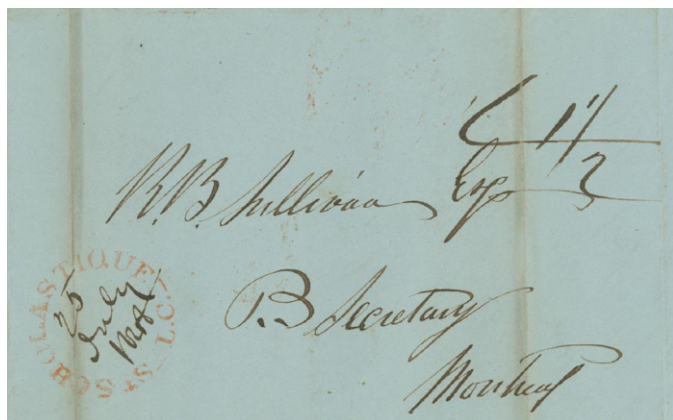 R. B. Sullivan Esq
P. Secretary
Montreal
ST SCHOLASTIQUE L.C.
25
July